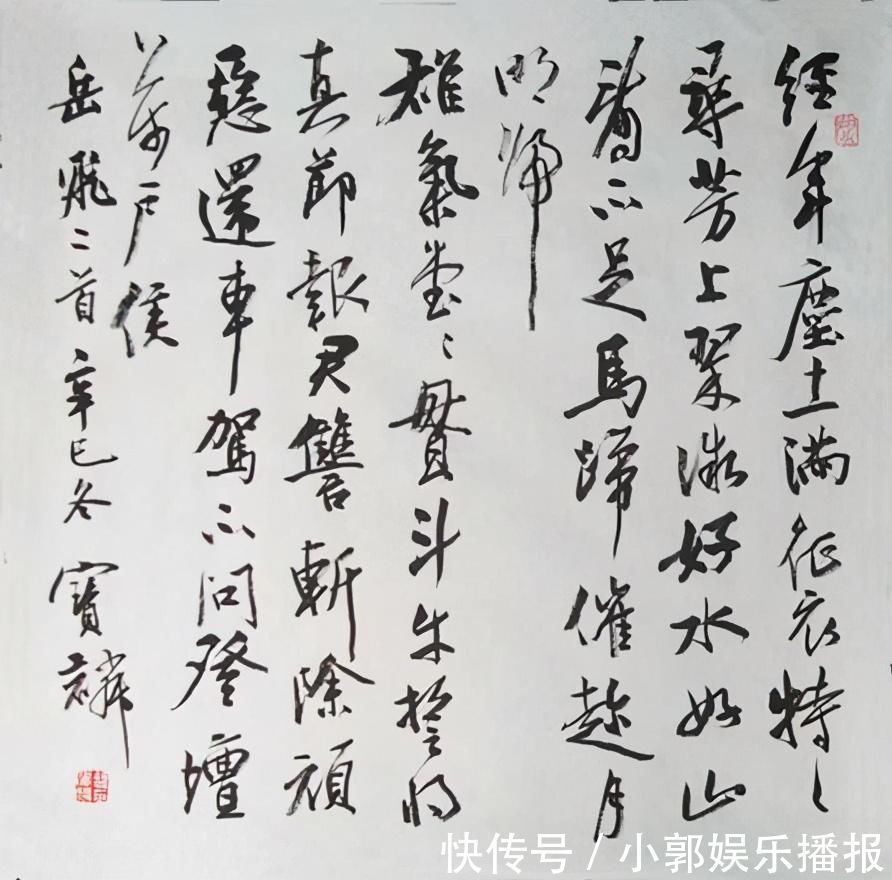 經年塵土滿征衣特〻
尋芳上翠微好水好山
看不足馬蹄催趁月
明歸
雄氣堂〻貫斗牛誓將
真節報君讐斬除頑
惡還車駕不問登壇
萬戶侯
岳飛二首辛巳冬 寶
快传号 / 小郭娱乐播报